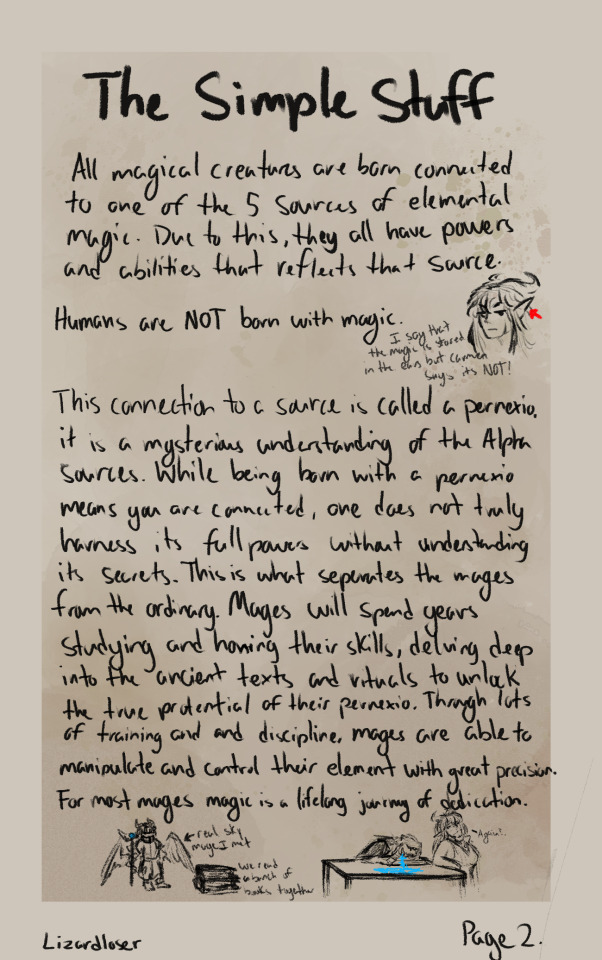 The Simple Stuff
All magical creatures are born connected
to one of the 5 sources of elemental
magic. Due to this, they all have powers
and abilities that reflects that source.
Humans are NOT born with magic.
I say that
the magic is stored
in the ears but Carmen
says its NOT!
This connection to a source is called a pernexio.
it is a mysterious understanding of the Alpha
Sources. While being born with a pernexio
means you are connected, one does not truly
harness its full powers without understanding
its secrets. This is what seperates the mages
from the ordinary. Mages will spend years
studying and honing their skills, delving deep
into the ancient texts and rituals to unlock
the true protential of their pernexio. Through lots
of training and and discipline, mages are able to
manipulate and control their element with great precision.
For most mages magic is a lifelong journey of dedication.
real sky
mage I met
we read
a bunch of
books together
Again?
Lizardloser
Page 2.